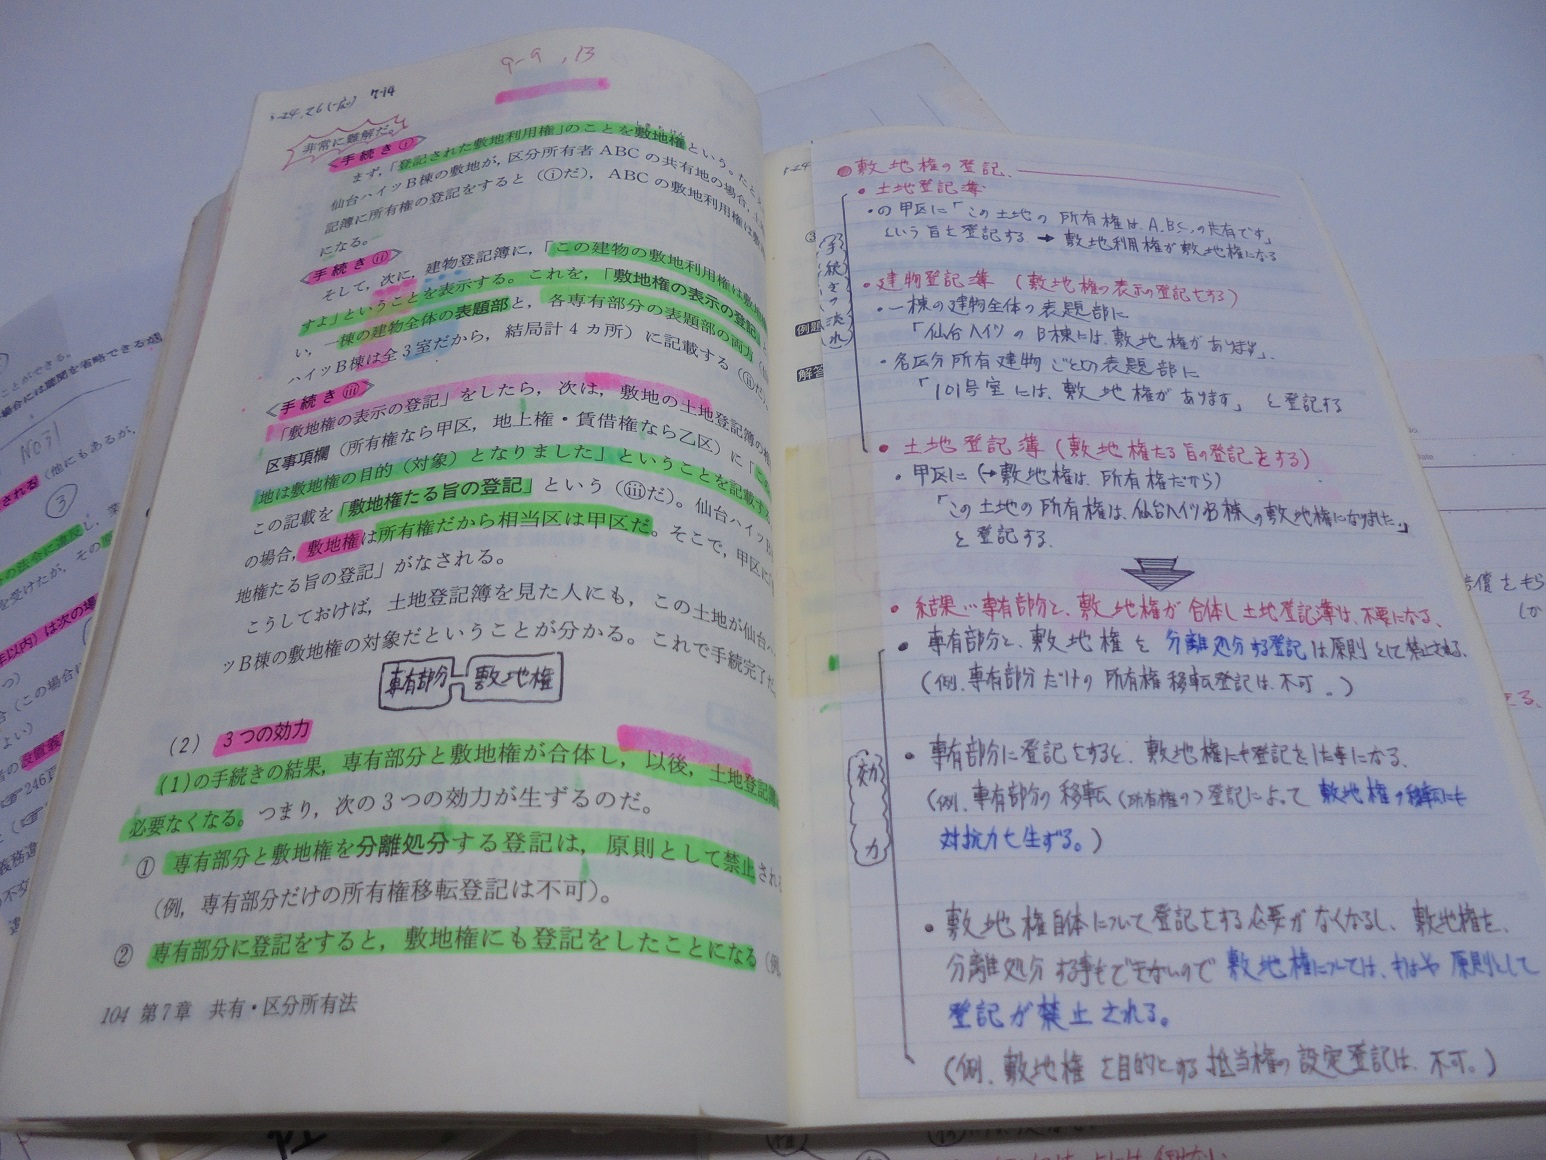 9-9, 13
7-14
非常に難解だ。
手続き(i)
まず,「登記された敷地利用権」のことを敷地権という。たと
仙台ハイツB棟の敷地が, 区分所有者ABCの共有地の場合,
記簿に所有権の登記をすると(ⓘだ), ABCの敷地利用権は敷
になる。
手続き(ii)
そして, 次に, 建物登記簿に,「この建物の敷地利用権は敷地
すよ」ということを表示する。これを,「敷地権の表示の登記」
い, 一棟の建物全体の表題部と, 各専有部分の表題部の両方
ハイツB棟は全3室だから, 結局計4カ所)に記載する(ⅱだ)。
手続き(iii)
「敷地権の表示の登記」をしたら, 次は, 敷地の土地登記簿の
区事項欄(所有権なら甲区, 地上権・賃借権なら乙区)に「この
地は敷地権の目的(対象)となりました」ということを記載する
この記載を「敷地権たる旨の登記」という(ⅲだ)。仙台ハイツB
の場合, 敷地権は所有権だから相当区は甲区だ。そこで, 甲区に
地権たる旨の登記」がなされる。
こうしておけば, 土地登記簿を見た人にも, この土地が仙台ハ
ッB棟の敷地権の対象だということが分かる。これで手続完了だ
専有部分 敷地権
(2) 3つの効力
(1)の手続きの結果, 専有部分と敷地権が合体し, 以後, 土地登記簿
必要なくなる。つまり, 次の3つの効力が生ずるのだ。
① 専有部分と敷地権を分離処分する登記は, 原則として禁止され
(例, 専有部分だけの所有権移転登記は不可)。
② 専有部分に登記をすると, 敷地権にも登記をしたことになる(例,
104 第7章 共有・区分所有法
●敷地権の登記.
・土地登記簿
・の甲区に「この土地の所有権は、A.B.C.の共有です」
という旨を登記する → 敷地利用権が敷地権になる
・建物登記簿 (敷地権の表示の登記をする)
・一棟の建物全体の表題部に
「仙台ハイツのB棟には、敷地権があります」.
・各区分所有建物ごとの表題部に
「101号室には、敷地権があります」と登記する
・土地登記簿(敷地権たる旨の登記をする)
・甲区に (→敷地権は、所有権だから)
「この土地の所有権は、仙台ハイツB棟の敷地権になりました」
と登記する.
手続きの流れ
例題
解答
・結果…専有部分と、敷地権が合体し土地登記簿は、不要になる、
・専有部分と、敷地権を分離処分する登記は原則として禁止される、
(例、専有部分だけの所有権移転登記は、不可。)
・専有部分に登記をすると、敷地権にも登記をした事になる、
(例、専有部分の移転(所有権の)登記によって敷地権の移転にも
対抗力も生ずる。)
効力
・敷地権自体について登記をする必要がなくなるし、敷地権を、
分離処分する事もできないので敷地権については、もはや原則として
登記が禁止される。
(例、敷地権を目的とする抵当権の設定登記は、不可。)
ことができる。
No31
される (他にもあるが,
③
の法令に違反し, 業
を受けたが, その
年以内)は次の場
合(この場合
よい)
246
義務違
償をもら